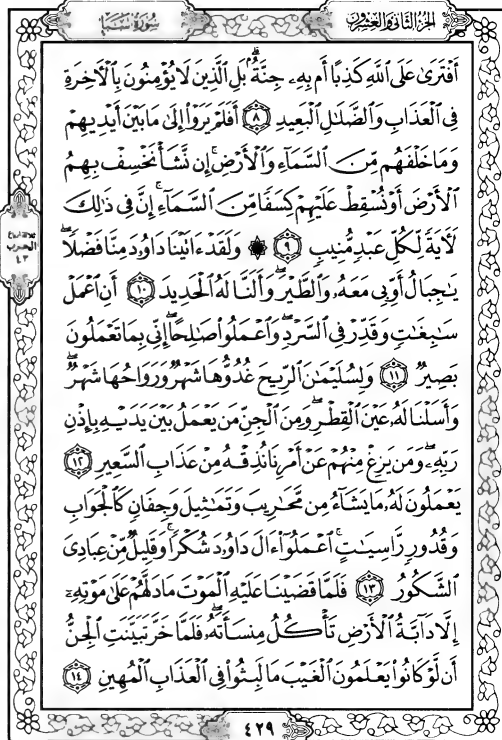 الجزء الثاني والعشرون
سورة سبإ
أَفْتَرَىٰ عَلَى ٱللَّهِ كَذِبًا أَم بِهِۦ جِنَّةٌۢ ۗ بَلِ ٱلَّذِينَ لَا يُؤْمِنُونَ بِٱلْأَخِرَةِ
فِى ٱلْعَذَابِ وَٱلضَّلَٰلِ ٱلْبَعِيدِ ٨ أَفَلَمْ يَرَوْا۟ إِلَىٰ مَا بَيْنَ أَيْدِيهِمْ
وَمَا خَلْفَهُم مِّنَ ٱلسَّمَآءِ وَٱلْأَرْضِ ۚ إِن نَّشَأْ نَخْسِفْ بِهِمُ
ٱلْأَرْضَ أَوْ نُسْقِطْ عَلَيْهِمْ كِسَفًا مِّنَ ٱلسَّمَآءِ ۚ إِنَّ فِى ذَٰلِكَ
لَآيَةً لِّكُلِّ عَبْدٍ مُّنِيبٍ ٩ ۞ وَلَقَدْ ءَاتَيْنَا دَاوُۥدَ مِنَّا فَضْلًا ۖ
يَٰجِبَالُ أَوِّبِى مَعَهُۥ وَٱلطَّيْرَ ۖ وَأَلَنَّا لَهُ ٱلْحَدِيدَ ١٠ أَنِ ٱعْمَلْ
سَٰبِغَٰتٍ وَقَدِّرْ فِى ٱلسَّرْدِ ۖ وَٱعْمَلُوا۟ صَٰلِحًا ۖ إِنِّى بِمَا تَعْمَلُونَ
بَصِيرٌ ١١ وَلِسُلَيْمَٰنَ ٱلرِّيحَ غُدُوُّهَا شَهْرٌ وَرَوَاحُهَا شَهْرٌ ۖ
وَأَسَلْنَا لَهُۥ عَيْنَ ٱلْقِطْرِ ۖ وَمِنَ ٱلْجِنِّ مَن يَعْمَلُ بَيْنَ يَدَيْهِ بِإِذْنِ
رَبِّهِۦ ۖ وَمَن يَزِغْ مِنْهُمْ عَنْ أَمْرِنَا نُذِقْهُ مِنْ عَذَابِ ٱلسَّعِيرِ ١٢
يَعْمَلُونَ لَهُۥ مَا يَشَآءُ مِن مَّحَٰرِيبَ وَتَمَٰثِيلَ وَجِفَانٍ كَٱلْجَوَابِ
وَقُدُورٍ رَّاسِيَٰتٍ ۚ ٱعْمَلُوٓا۟ ءَالَ دَاوُۥدَ شُكْرًا ۚ وَقَلِيلٌ مِّنْ عِبَادِىَ
ٱلشَّكُورُ ١٣ فَلَمَّا قَضَيْنَا عَلَيْهِ ٱلْمَوْتَ مَا دَلَّهُمْ عَلَىٰ مَوْتِهِۦٓ
إِلَّا دَآبَّةُ ٱلْأَرْضِ تَأْكُلُ مِنسَأَتَهُۥ ۖ فَلَمَّا خَرَّ تَبَيَّنَتِ ٱلْجِنُّ
أَن لَّوْ كَانُوا۟ يَعْلَمُونَ ٱلْغَيْبَ مَا لَبِثُوا۟ فِى ٱلْعَذَابِ ٱلْمُهِينِ ١٤
الحزب
٤٣
٤٢٩